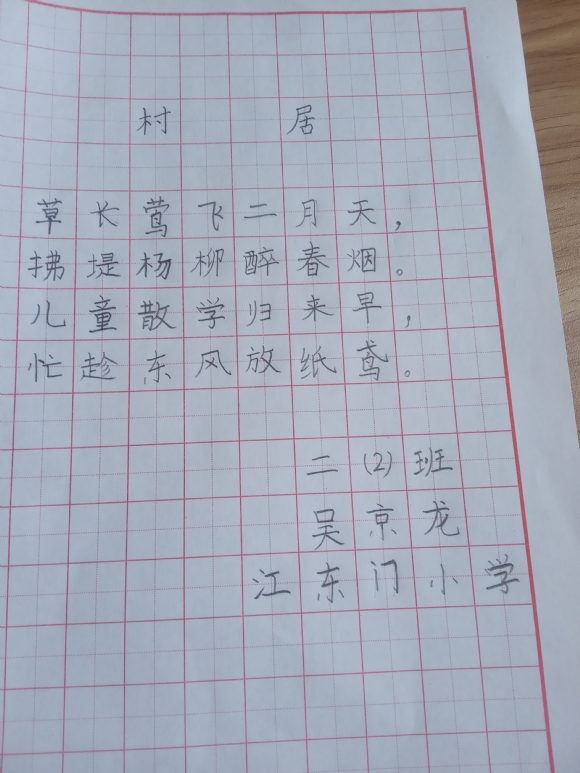 村居
草长莺飞二月天，
拂堤杨柳醉春烟。
儿童散学归来早，
忙趁东风放纸鸢。
二（2）班
吴京龙
江东门小学